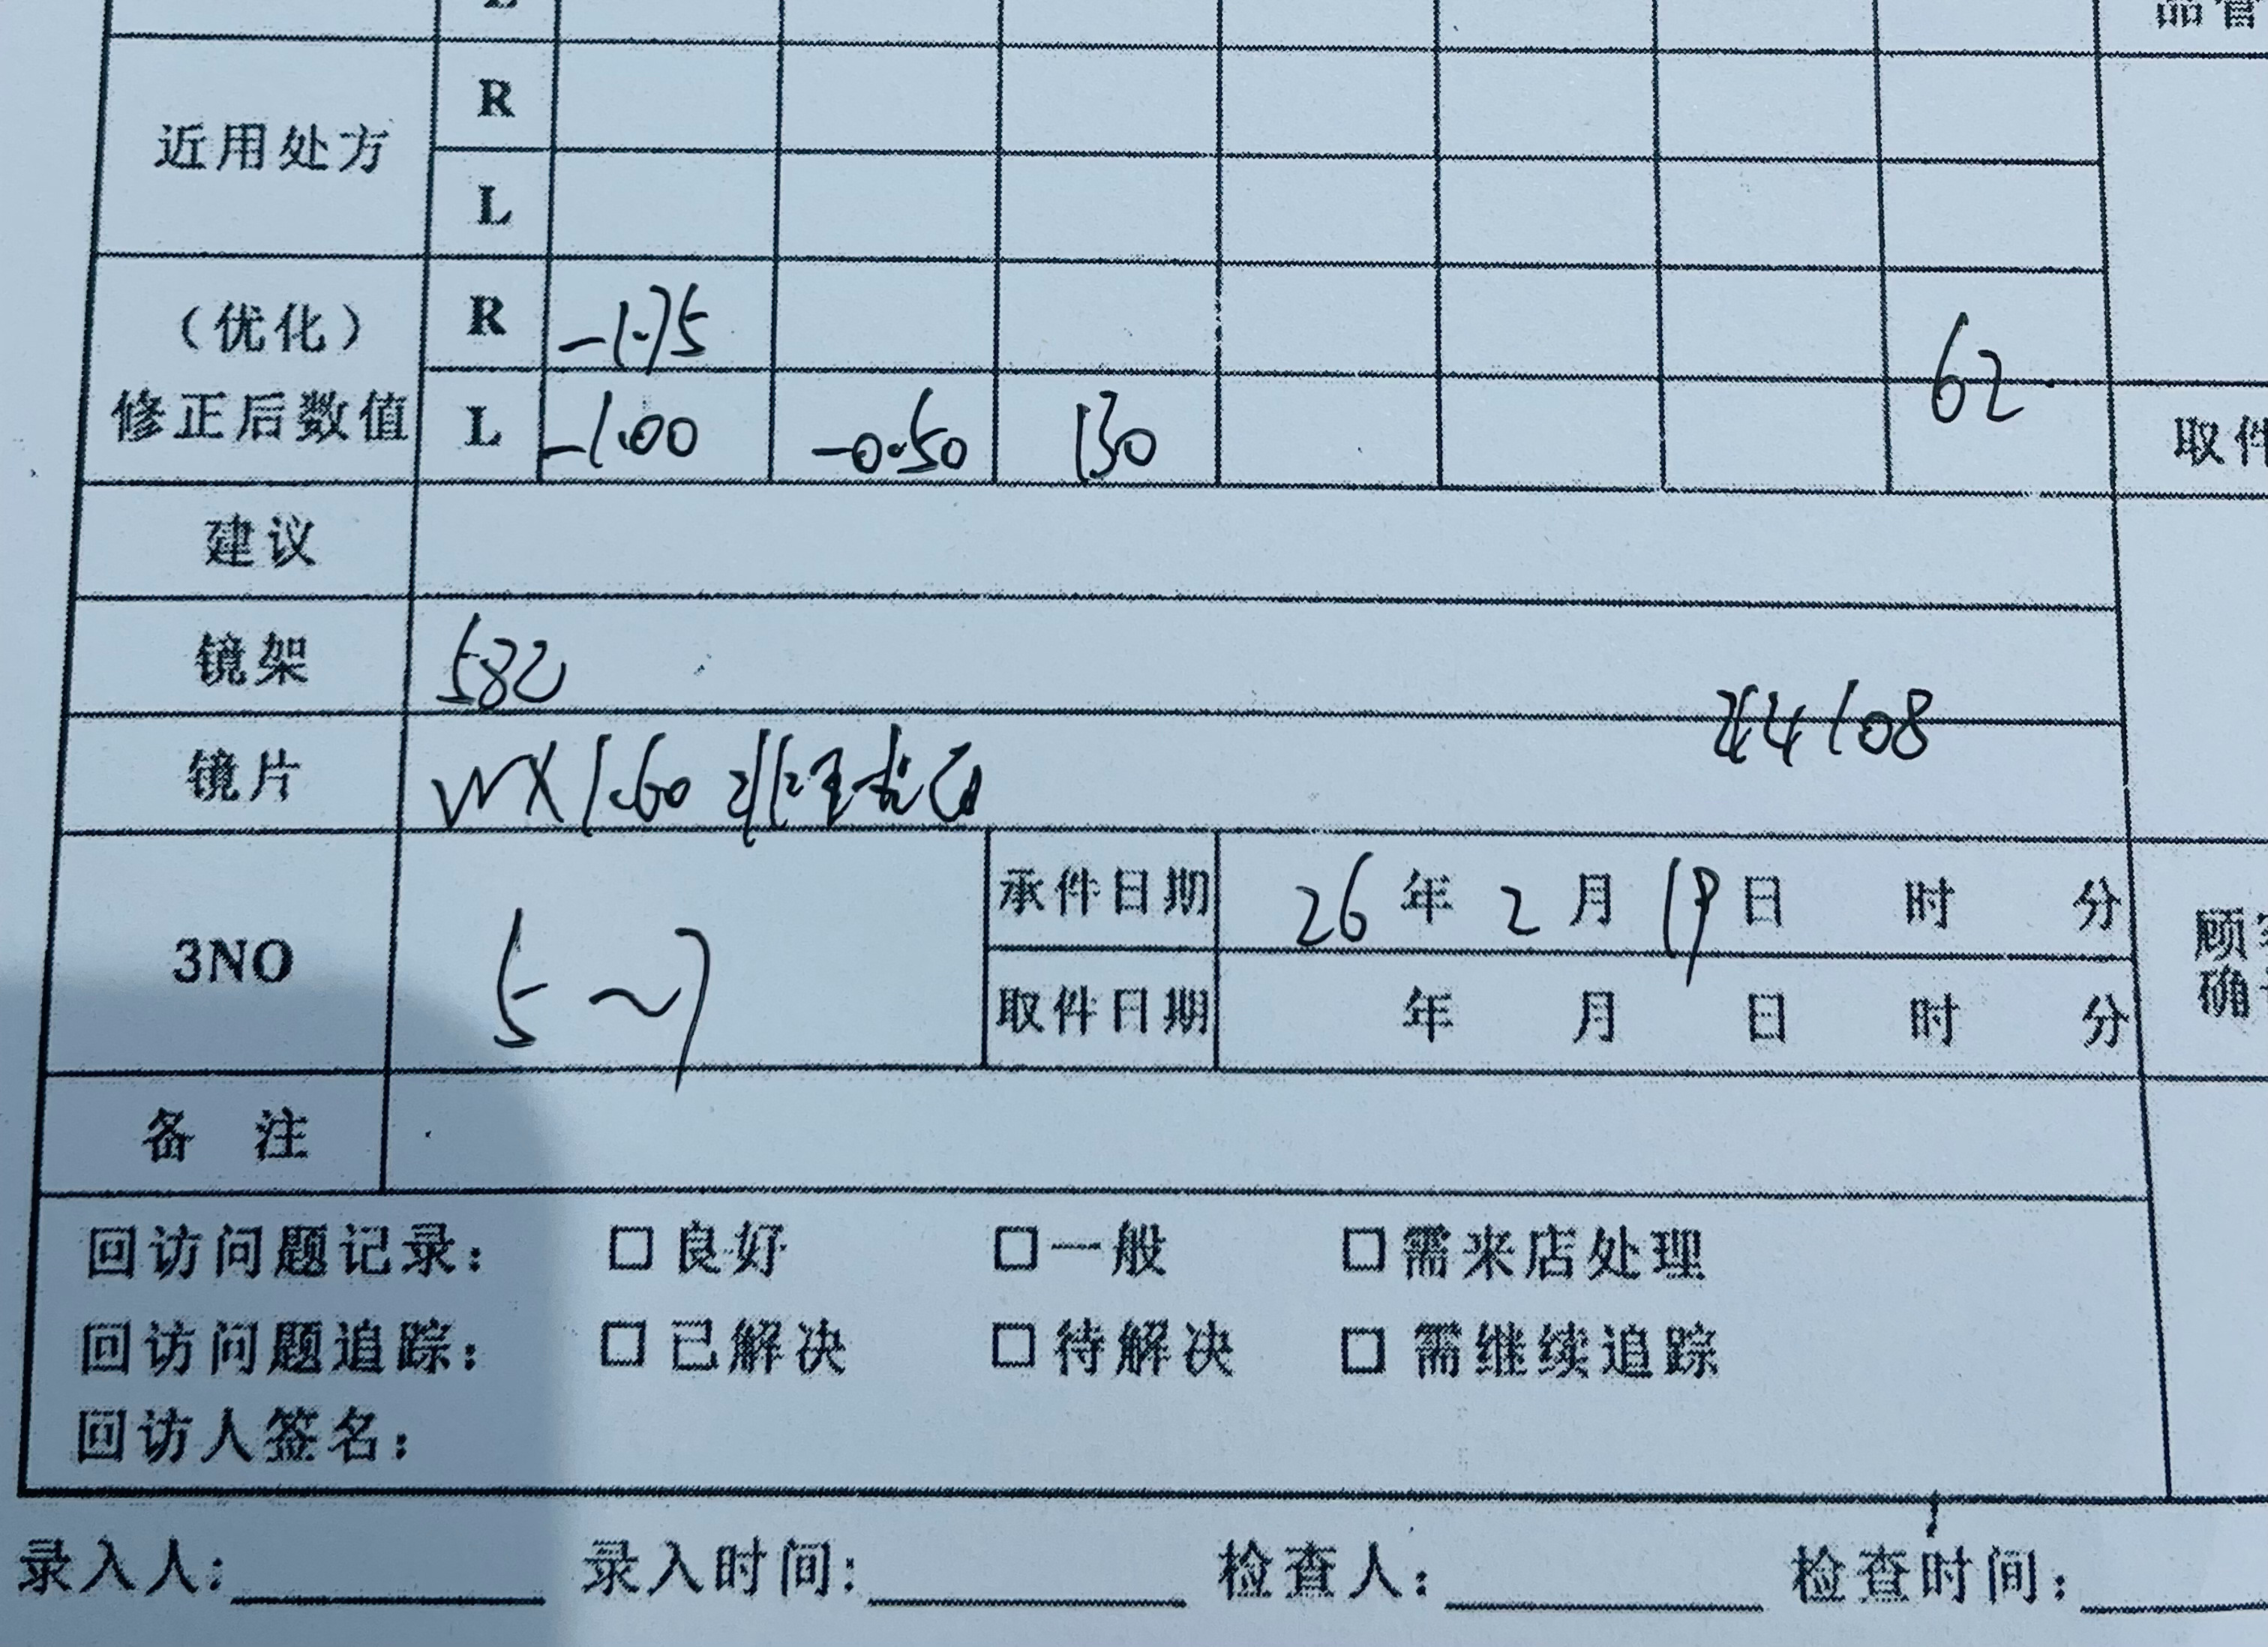 品管
近用处方 R
L
（优化）
修正后数值 R -1.75 62
L -1.00 -0.50 130
取件
建议
镜架 582
镜片 WX 1.60 非球 108
3NO 5~7
承件日期 26年2月19日 时 分
取件日期 年 月 日 时 分
顾客
确
备 注
回访问题记录： □良好 □一般 □需来店处理
回访问题追踪： □已解决 □待解决 □需继续追踪
回访人签名：
录入人： 录入时间： 检查人： 检查时间：